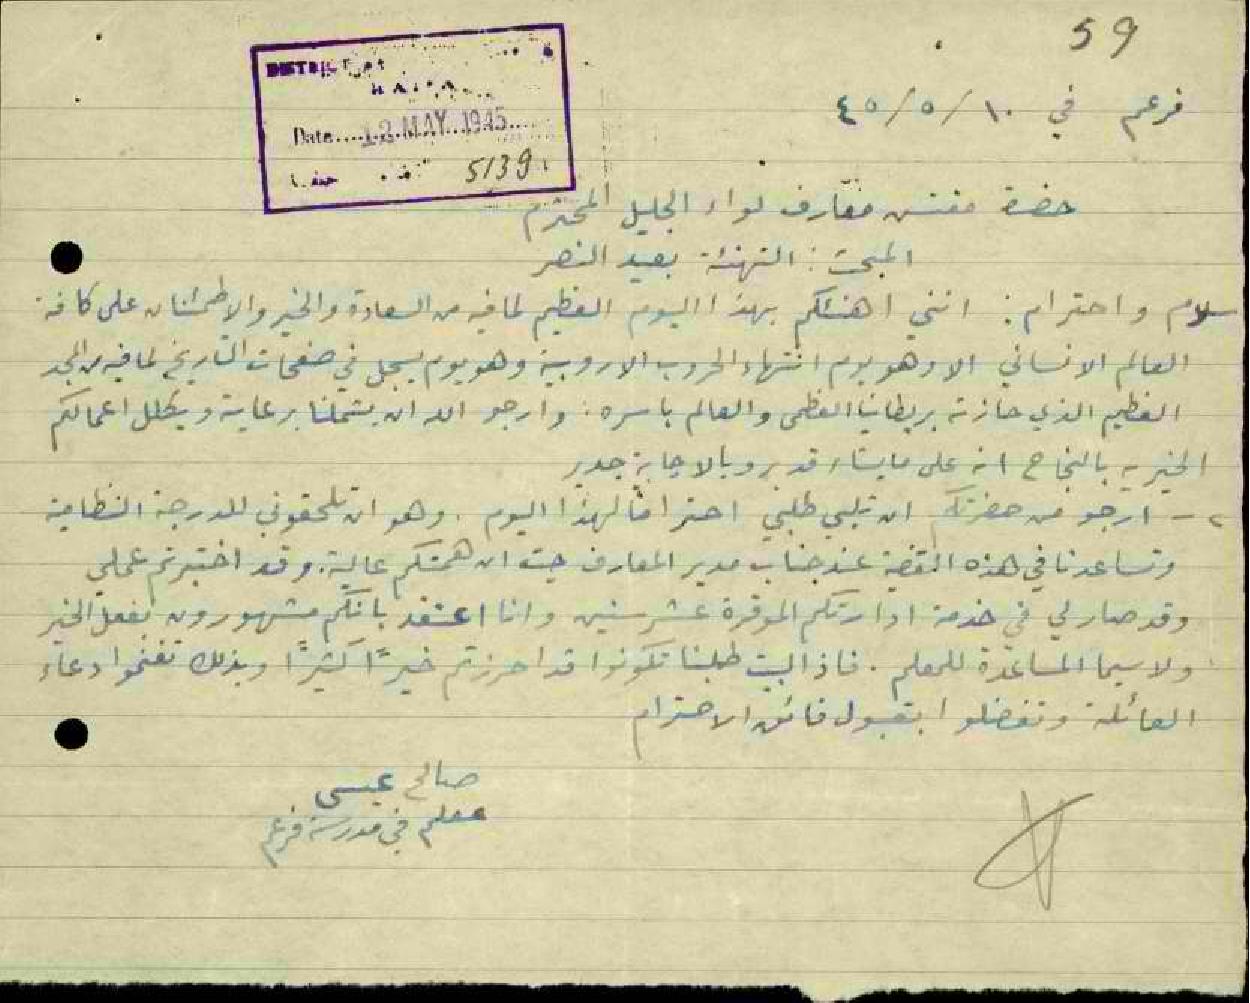 59
DISTRICT
HAIFA
Date 12 MAY 1945
حيفا 5139
فرعم في ١٠/٥/٤٥
حضرة مفتش معارف لواء الجليل المحترم
المبحث: التهنئة بعيد النصر
سلام واحترام: انني اهنئكم بهذا اليوم العظيم لما فيه من السعادة والخير والاطمئنان على كافة
العالم الانساني الا وهو يوم انتهاء الحروب الاروبية وهو يوم يسجل في صفحات التاريخ لما فيه من المجد
العظيم الذي حازته بريطانيا العظمى والعالم باسره: وارجو الله ان يشملنا برعايته ويكلل اعمالكم
الخيريه بالنجاح انه على ما يشاء قدير وبالاجابة جدير
٢- ارجو من حضرتكم ان تلبي طلبي احتراما لهذا اليوم. وهو ان تلحقوني للدرجة النظامية
وتساعدنا في هذه القضية عند جناب مدير المعارف حيث ان همتكم عالية. وقد اختبرتم عملي
وقد صار لي في خدمة ادارتكم الموقرة عشر سنين وانا اعتقد بانكم مشهورون بفعل الخير
ولا سيما المساعدة للمعلم. فاذا لبيت طلبنا تكونوا قد احرزتم خيرًا كثيرًا وبذلك تغنموا دعاء
العائلة وتفضلوا بقبول فائق الاحترام
صالح عيسى
معلم في مدرسة فرعم